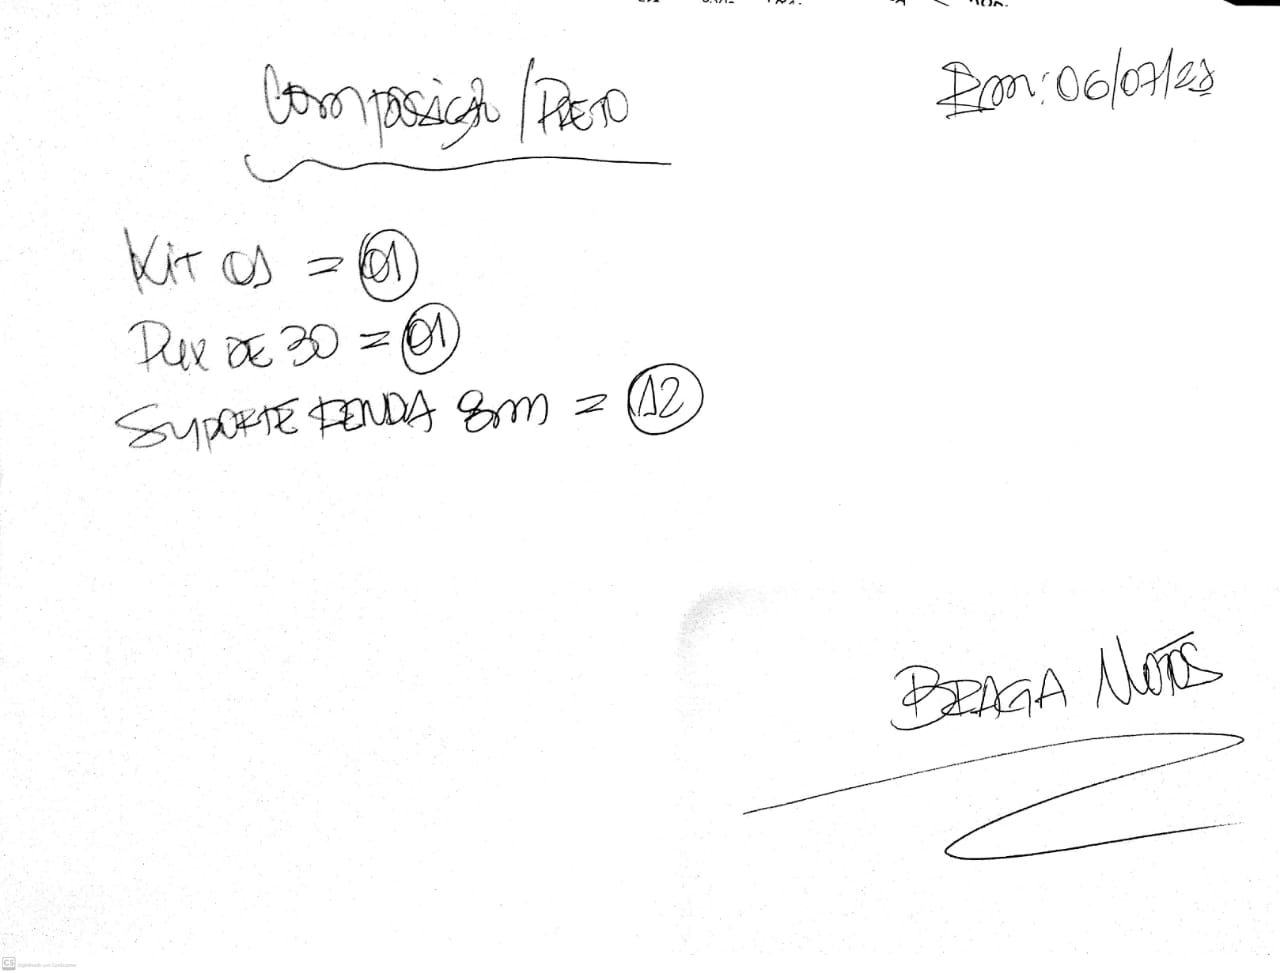 Composição/PRETO
Em: 06/07/21
Kit 01 = 01
Pux DE 30 = 01
SUPORTE FENDA 8m = 12
BRAGA Motos
CS Digitalizado com CamScanner